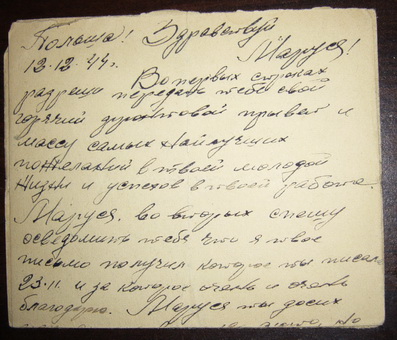 Польша! Здравствуй
12.12.44г. Маруся!
Во первых строках
разреши передать тебе свой
горячий фронтовой привет и
массу самых наилучших
пожеланий в твоей молодой
жизни и успехов в твоей работе.
Маруся, во вторых спешу
осведомить тебя что я твое
письмо получил которое ты писала
23.11. и за которое очень и очень
благодарю. Маруся ты до сих